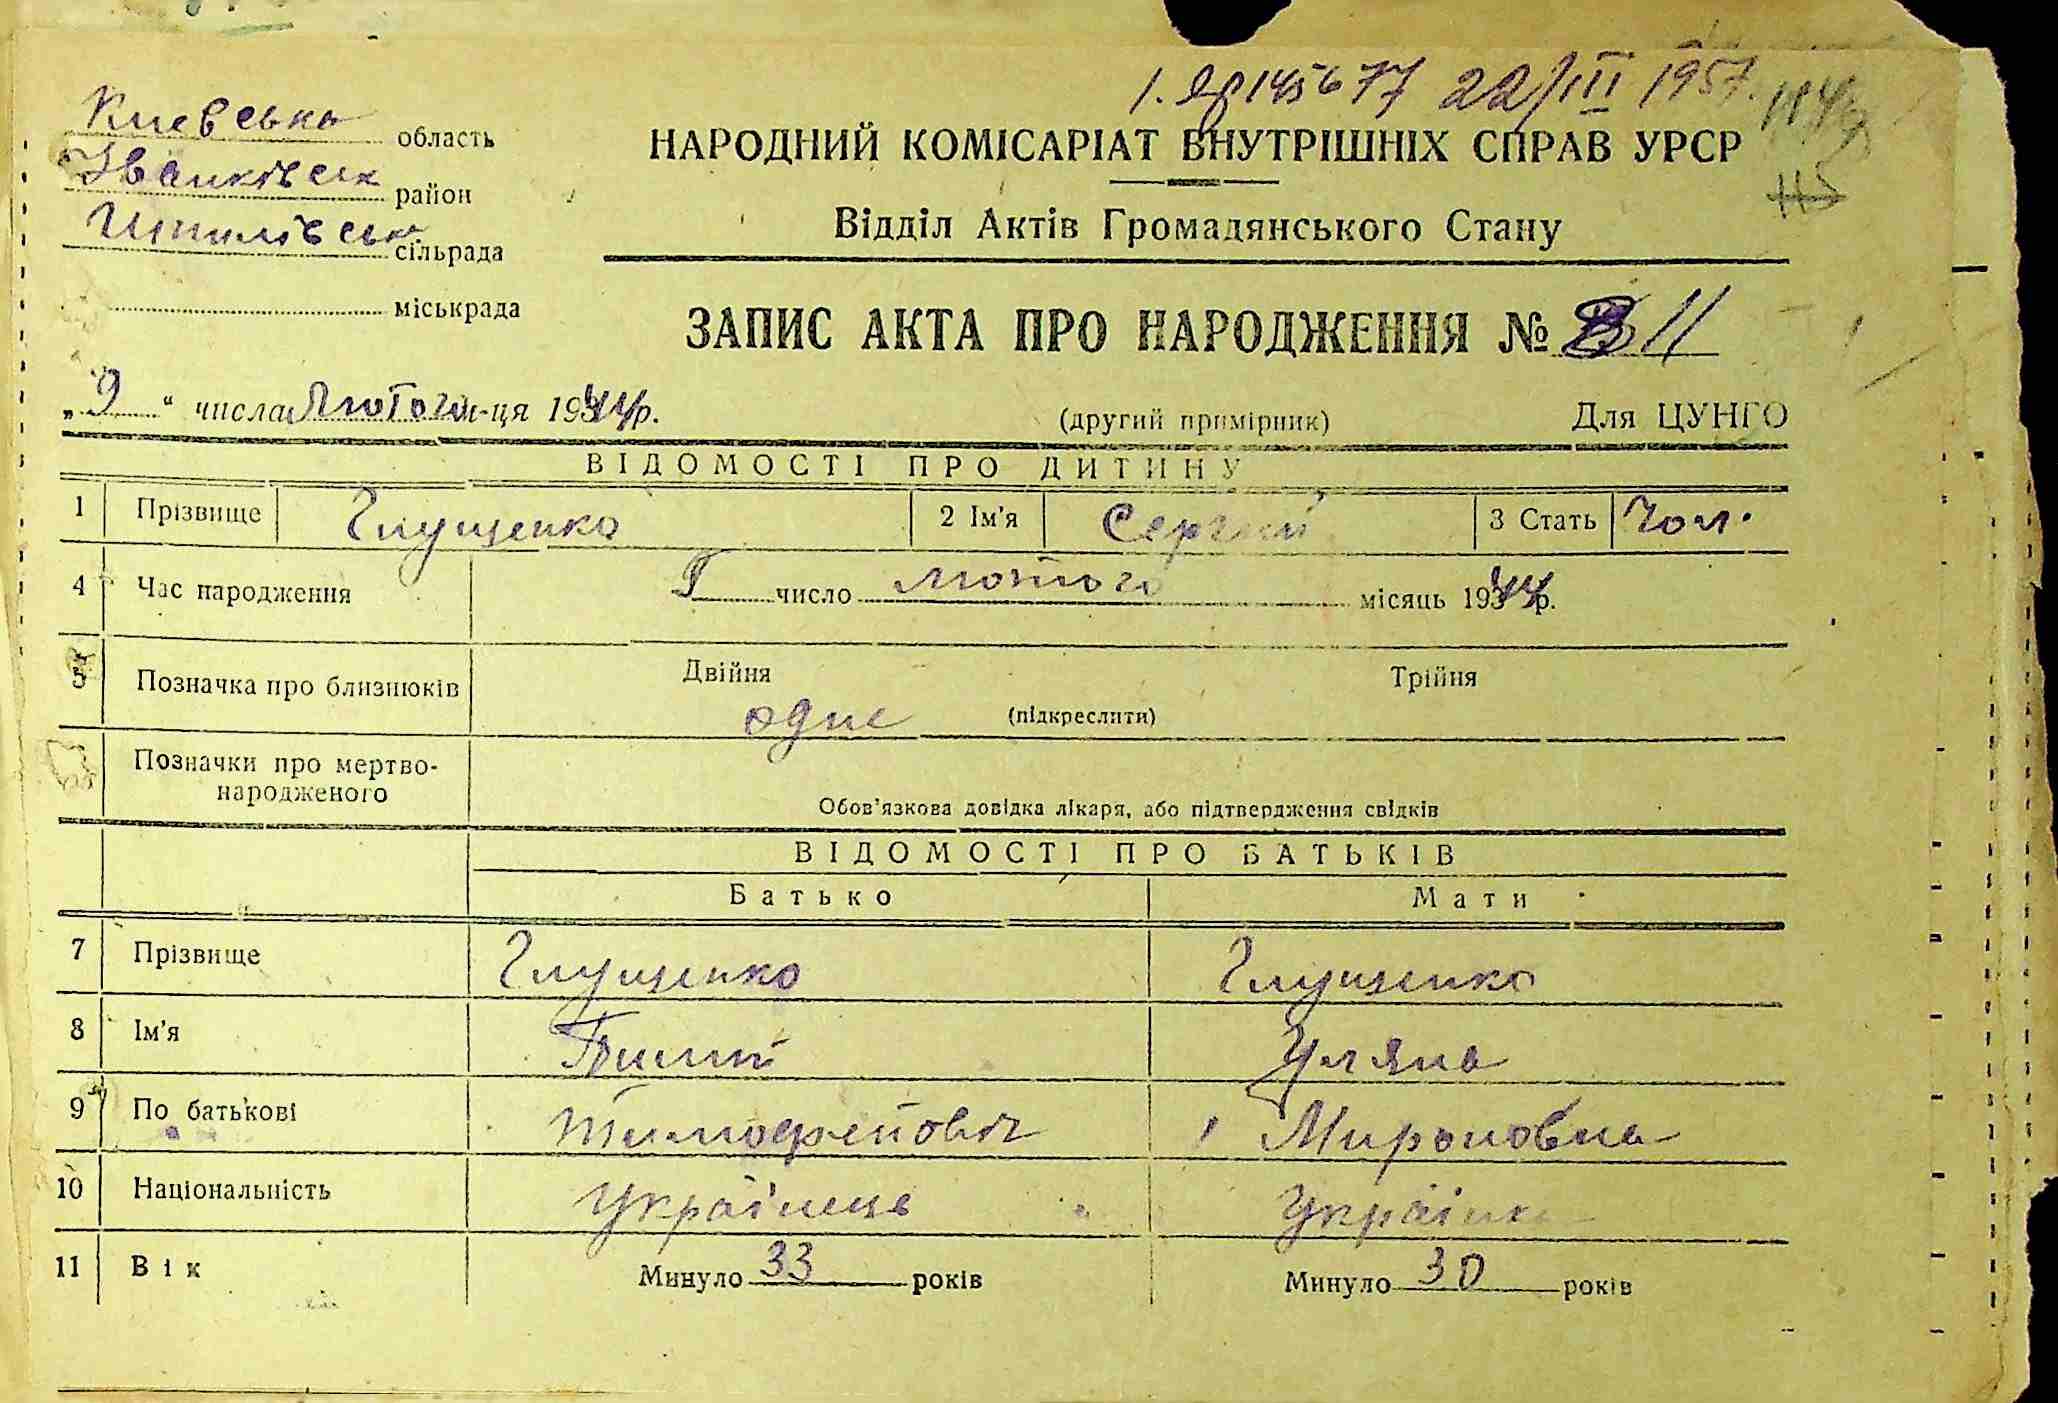 22/III 1957.
Киевська область
Іванківськ район
сільрада
міськрада
НАРОДНИЙ КОМІСАРІАТ ВНУТРІШНІХ СПРАВ УРСР
Відділ Актів Громадянського Стану
ЗАПИС АКТА ПРО НАРОДЖЕННЯ № 11
„9" числа Лютого м-ця 1944 р.
(другий примірник)
Для ЦУНГО
ВІДОМОСТІ ПРО ДИТИНУ
1 Прізвище Глущенко 2 Ім'я Сергий 3 Стать Чол.
4 Час народження число лютого місяць 1944 р.
5 Позначка про близнюків Двійня Трійня
одне (підкреслити)
Позначки про мертво-
народженого
Обов'язкова довідка лікаря, або підтвердження свідків
ВІДОМОСТІ ПРО БАТЬКІВ
Батько Мати
7 Прізвище Глущенко Глущенко
8 Ім'я Уляна
9 По батькові Тимофейович Мироновна
10 Національність Українець Українка
11 Вік Минуло 33 років Минуло 30 років